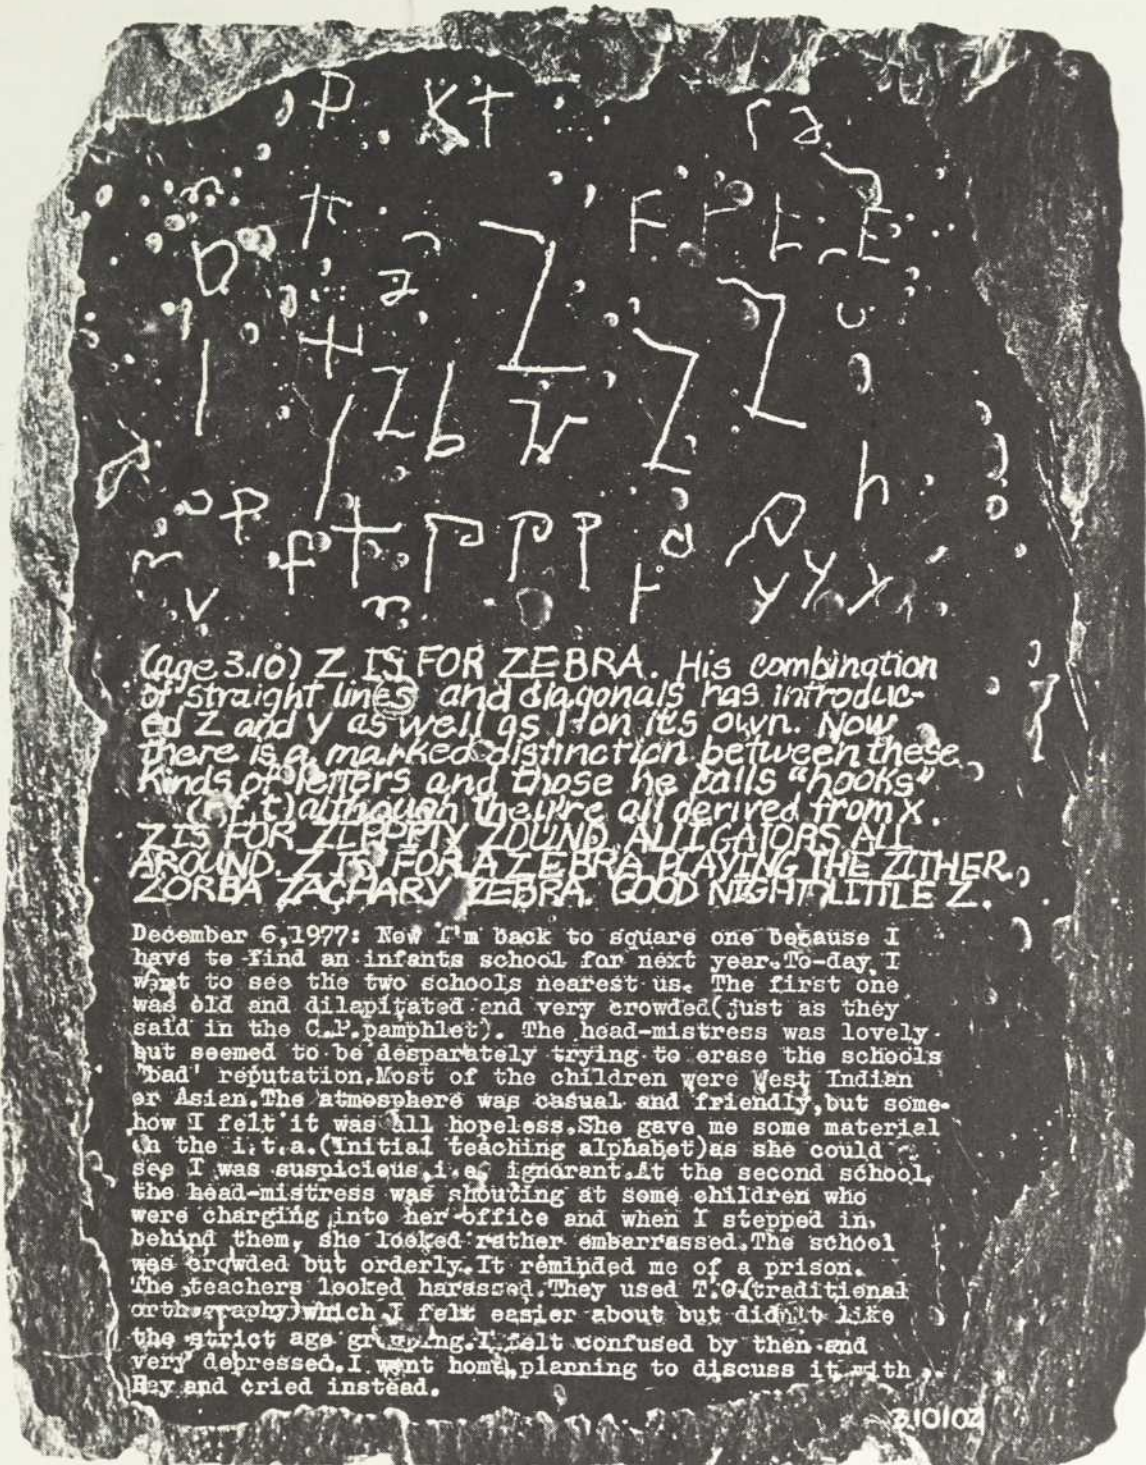 P K t r a
n π Z F r t E
D a Z u
t
l / Z b r Z
o p h
r f t P P P a
v n r y y y
(age 3.10) Z IS FOR ZEBRA. His combination
of straight lines and diagonals has introduc-
ed Z and y as well as l on it's own. Now
there is a marked distinction between these
kinds of letters and those he calls "hooks"
(r, f, t) although they're all derived from x.
Z IS FOR ZIPPITY ZOUND, ALLIGATORS ALL
AROUND. Z IS FOR A ZEBRA PLAYING THE ZITHER.
ZORBA ZACHARY ZEBRA. GOOD NIGHT LITTLE Z.
December 6,1977: Now I'm back to square one because I
have to find an infants school for next year.To-day I
went to see the two schools nearest us. The first one
was old and dilapitated and very crowded(just as they
said in the C.P.pamphlet). The head-mistress was lovely
but seemed to be desparately trying to erase the schools
'bad' reputation.Most of the children were West Indian
or Asian.The atmosphere was casual and friendly,but some-
how I felt it was all hopeless.She gave me some material
on the i.t.a.(initial teaching alphabet)as she could
see I was suspicious,i.e. ignorant.At the second school,
the head-mistress was shouting at some children who
were charging into her office and when I stepped in
behind them, she looked rather embarrassed.The school
was crowded but orderly.It reminded me of a prison.
The teachers looked harassed.They used T.O(traditional
orthography)which I felt easier about but didn't like
the strict age grouping.I felt confused by then and
very depressed.I went home,planning to discuss it with
Ray and cried instead.
3.1010Z